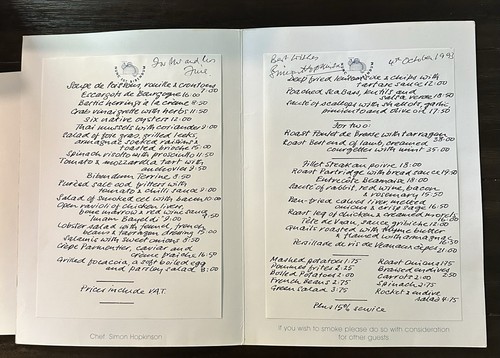 For Mr and Mrs
BIBENDUM
Soupe de Poissons, rouille & croutons
Escargots de Bourgogne 16:00
Baltic herrings à la crème 8:50
Crab vinaigrette with herbs 11:50
Six native oysters 12:00
Thai mussels with coriander 9:00
Salad of foie gras, grilled leeks,
armagnac soaked raisins &
toasted brioche 15:00
Spinach risotto with prosciutto 11:50
Tomato & mozzarella tart with
anchovies
Bibendum Terrine
Pureed salt cod fritters with
tomato & chilli sauce 9:00
Salad of smoked eel with bacon 10:00
Open ravioli of chicken liver,
bone marrow & red wine sauce
Lobster salad with fennel, french
beans & tarragon dressing
with sweet onions 8:50
Crêpe Parmentier, caviar and
crème fraîche 16:50
Grilled focaccia, a soft boiled egg
and parsley salad 8:00
Prices include VAT.
Chef: Simon Hopkinson
Best Wishes
Simon Hopkinson
4th October 1993
Deep fried & chips with
tartare sauce
Poached Sea Bass, lentils and
salsa verde 18:50
Sauté of scallops with shallots, garlic,
and olive oil 17:50
For two:
Roast Poulet de Bresse with tarragon
Roast Best end of lamb, creamed
courgettes with mint 35:00
Fillet Steak au poivre 18:00
Roast Partridge with bread sauce
Entrecôte Béarnaise 18:00
Sauté of rabbit, red wine, bacon
& rosemary 15:50
Pan-fried calves liver, melted
onions & crisp sage 16:50
Roast leg of chicken & creamed morels
Tête de Veau, sauce gribiche
Quails roasted with thyme butter
& flamed with armagnac
Persillade de ris de veau
Mashed potatoes 1:75
Pommes frites 2:25
Boiled Potatoes
French Beans 2:75
Green Salad 3:75
Roast Onions
Braised endives
Carrots 2:00
Spinach 2:75
Rocket & endive
salad 4:75
Plus 15% service
If you wish to smoke please do so with consideration
for other guests.